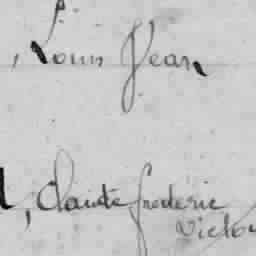 , Louis Jean
, Claude frederic
Victor